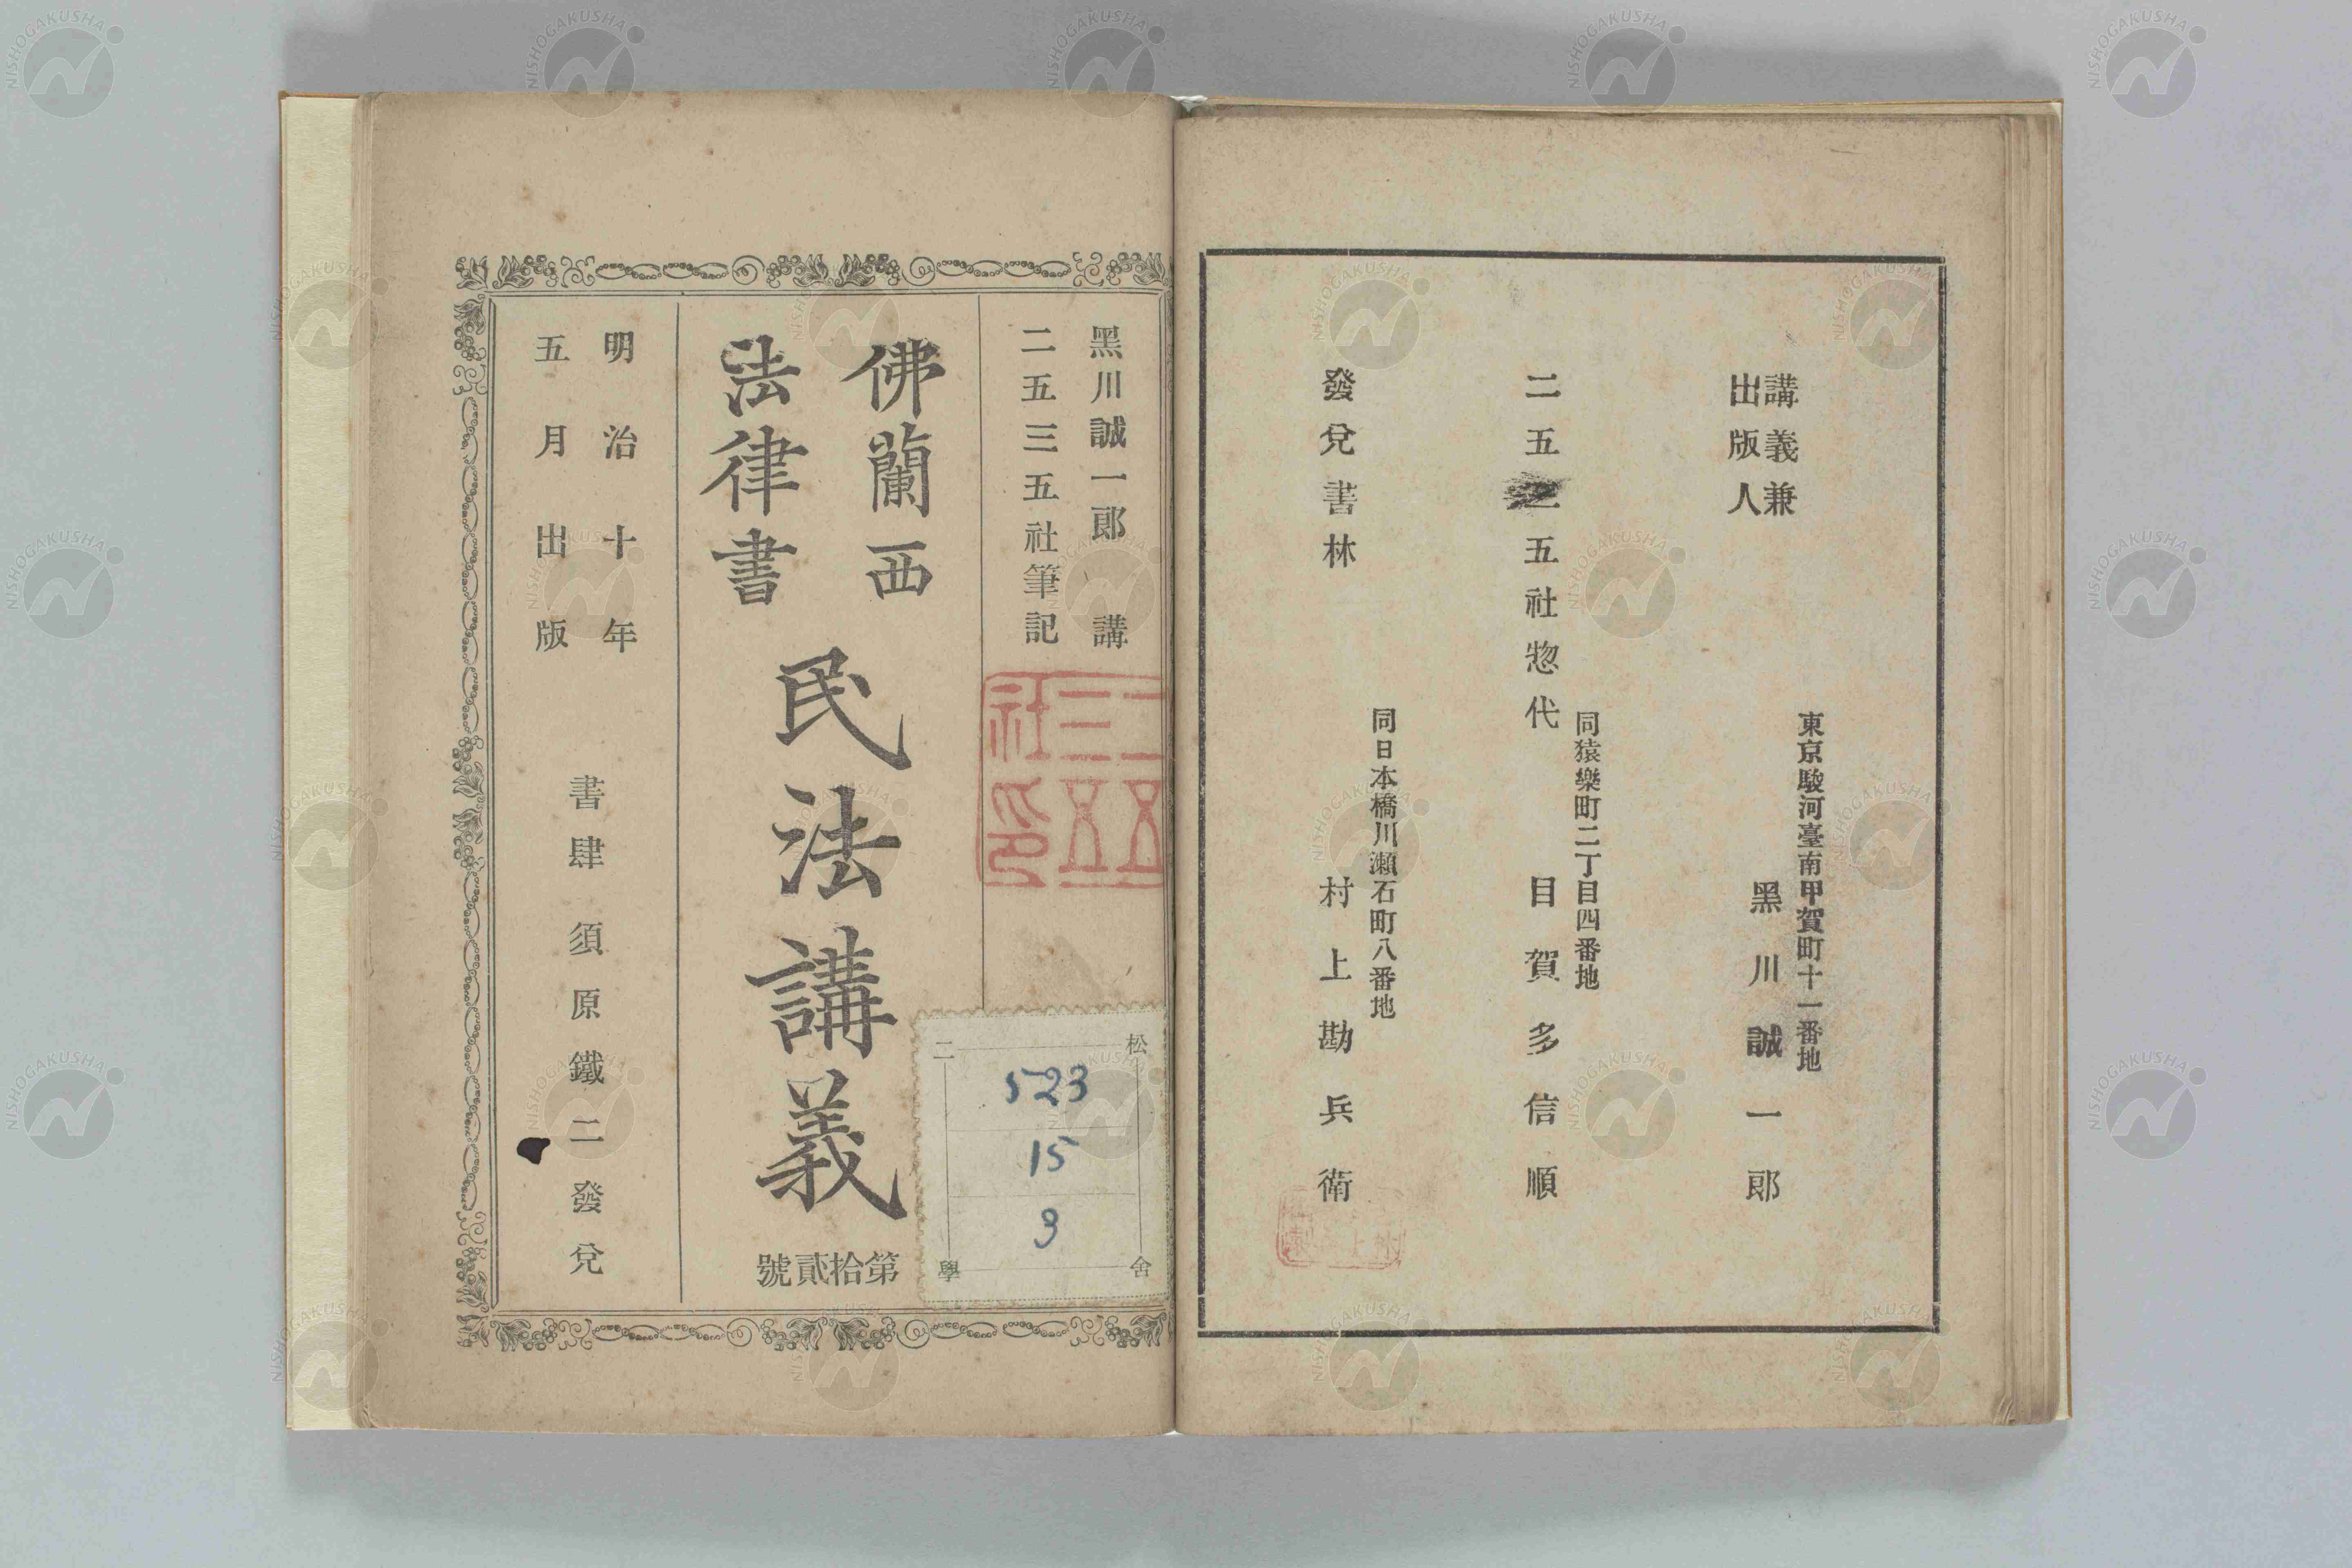 講義兼
出版人
東京駿河臺南甲賀町十一番地
黑川誠一郎
二五三五社惣代
同猿樂町二丁目四番地
目賀多信順
發兌書林
同日本橋川瀬石町八番地
村上勘兵衛
黑川誠一郎 講
二五三五社筆記
二五三五社印
佛蘭西
法律書
民法講義
第拾貳號
明治十年
五月出版
書肆 須原鐵二發兌
二松學舍
523
15
3
NISHOGAKUSHA